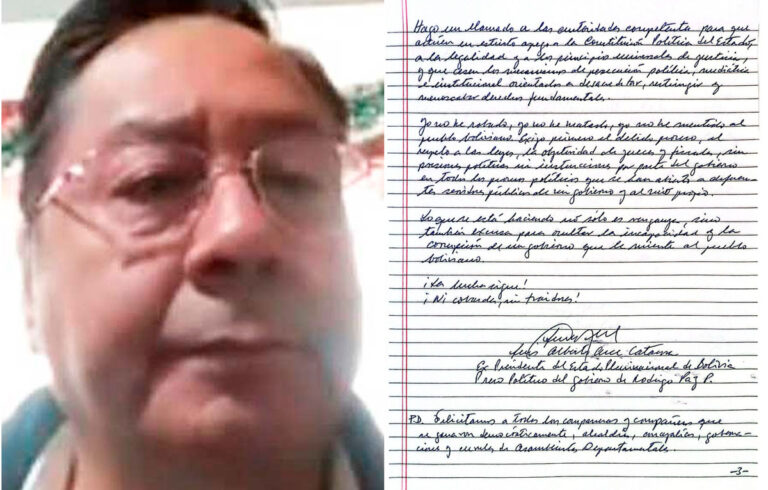 Hago un llamado a las autoridades competentes para que
actúen en estricto apego a la Constitución Política del Estado,
a la legalidad y a los principios universales de justicia,
y que cesen los mecanismos de persecución política, mediática
e institucional orientados a desacreditar, restringir y
menoscabar derechos fundamentales.
Yo no he robado, yo no he matado, yo no he mentido al
pueblo boliviano. Exijo primero el debido proceso, el
respeto a las leyes, la objetividad de jueces y fiscales, sin
presiones políticas ni instrucciones por parte del gobierno
en todos los procesos políticos que se han abierto a
servidores públicos de mi gobierno y al mío propio.
Lo que se está haciendo no sólo es venganza, sino
también excusa para ocultar la incapacidad y la
corrupción de un gobierno que le miente al pueblo
boliviano.
¡La lucha sigue!
¡Ni cobardes, ni traidores!
Luis Alberto Arce Catacora
Ex Presidente del Estado Plurinacional de Bolivia
Preso Político del gobierno de Rodrigo Paz P.
P.D. Felicitamos a todos los compañeros y compañeras que
se ganaron democráticamente, alcaldías, concejalías, goberna-
ciones y curules de Asambleístas Departamentales.
-3-